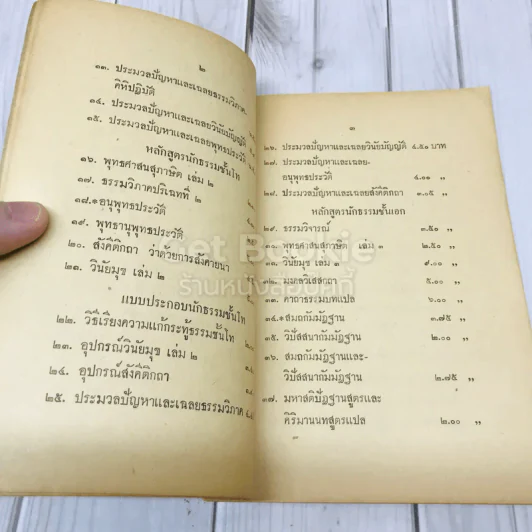 ๒
๑๓. ประมวลปัญหาและเฉลยธรรมวิภาค-
คิหิปฏิบัติ
๑๔. ประมวลปัญหาและเฉลยวินัยบัญญัติ
๑๕. ประมวลปัญหาและเฉลยพุทธประวัติ
หลักสูตรนักธรรมชั้นโท
๑๖. พุทธศาสนสุภาษิต เล่ม ๒
๑๗. ธรรมวิภาคปริเฉทที่ ๒
๑๘.*อนุพุทธประวัติ
๑๙. พุทธานุพุทธประวัติ
๒๐. สังคีติกถา ว่าด้วยการสังคายนา
๒๑. วินัยมุข เล่ม ๒
แบบประกอบนักธรรมชั้นโท
๒๒. วิธีเรียงความแก้กระทู้ธรรมชั้นโท
๒๓. อุปกรณ์วินัยมุข เล่ม ๒
๒๔. อุปกรณ์สังคีติกถา
๒๕. ประมวลปัญหาและเฉลยธรรมวิภาค
๓
๒๖. ประมวลปัญหาและเฉลยวินัยบัญญัติ ๔.๕๐ บาท
๒๗. ประมวลปัญหาและเฉลย-
อนุพุทธประวัติ
๒๘. ประมวลปัญหาและเฉลยสังคีติกถา ๓.๐๕ ,,
หลักสูตรนักธรรมชั้นเอก
๒๙. ธรรมวิจารณ์ ๓.๕๐ ,,
๓๐. พุทธศาสนสุภาษิต เล่ม ๓ ๒.๕๐ ,,
๓๑. วินัยมุข เล่ม ๓ ๙.๐๐ ,,
๓๒. มงคลวิเสสกถา ๕.๐๐ ,,
๓๓. คาถาธรรมบทแปล ๖.๐๐ ,,
๓๔.*สมถกัมมัฏฐาน ๓.๗๕ ,,
๓๕. วิปัสสนากัมมัฏฐาน ๒.๐๐ ,,
๓๖. สมถกัมมัฏฐานและ-
วิปัสสนากัมมัฏฐาน ๒.๗๕ ,,
๓๗. มหาสติปัฏฐานสูตรและ
คิริมานนทสูตรแปล ๒.๐๐ ,,
Get Bookie
ร้านหนังสือบุ๊คกี้